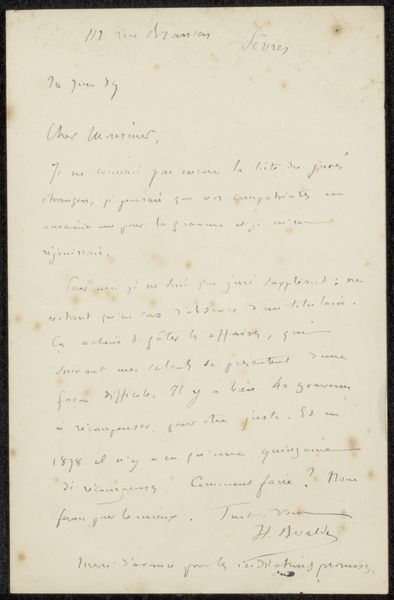 112 rue Brancas Sèvres
10 Juin 89
Cher Monsieur,
Je ne connais pas encore la liste des jurés
étrangers, je pensais que vos compatriotes en
auraient un pour la gravure et je m'en
réjouissais.
Pour moi je ne suis que juré suppléant : ne
votant qu'en cas d'absence d'un titulaire.
Ça achève de gâter les affaires, qui
suivant mes calculs se présentent d'une
façon difficile. Il y a bien 40 graveurs
à récompenser, pour être juste. Et en
1878 il n'y a eu qu'une quinzaine
de récompenses ! Comment faire ? Nous
ferons pour le mieux. Tout à vous
H. Beraldi
Merci d'avance pour les indications promises.